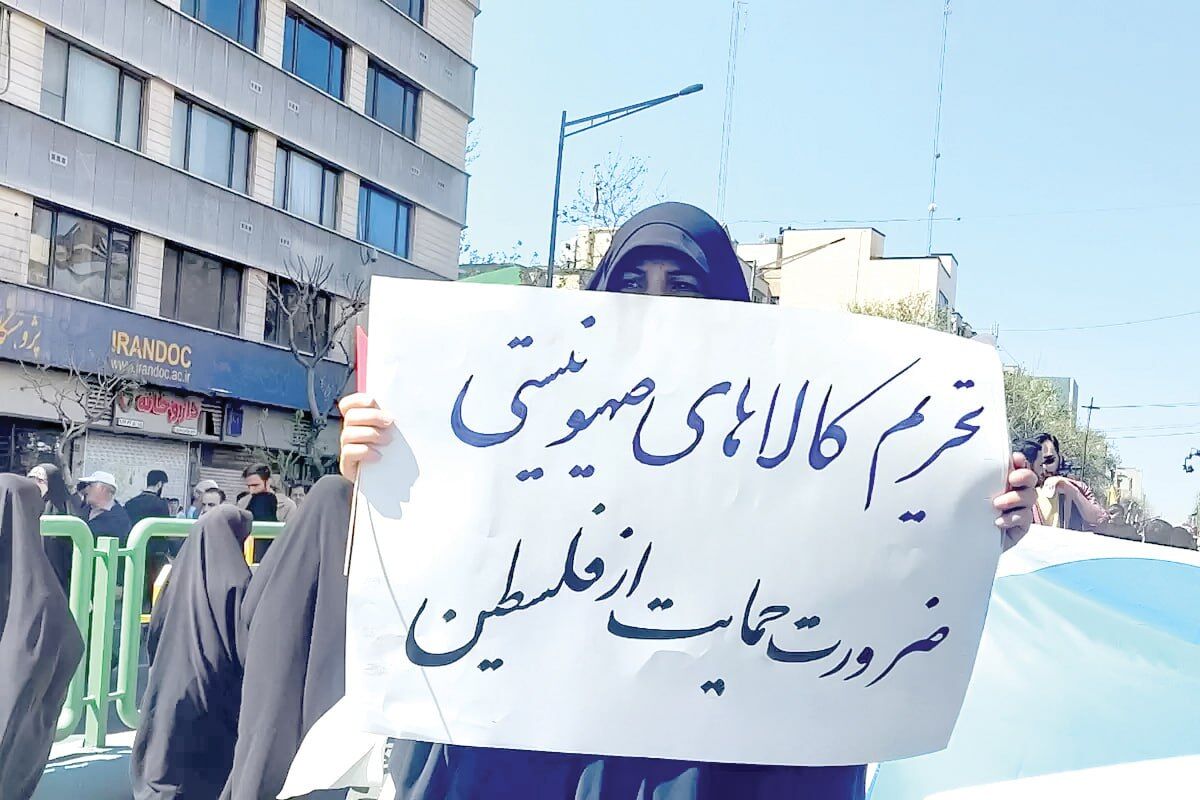 تحریم کالاهای صهیونیستی
ضرورت حمایت از فلسطین
IRANDOC
www.irandoc.ac.ir
داروخانه